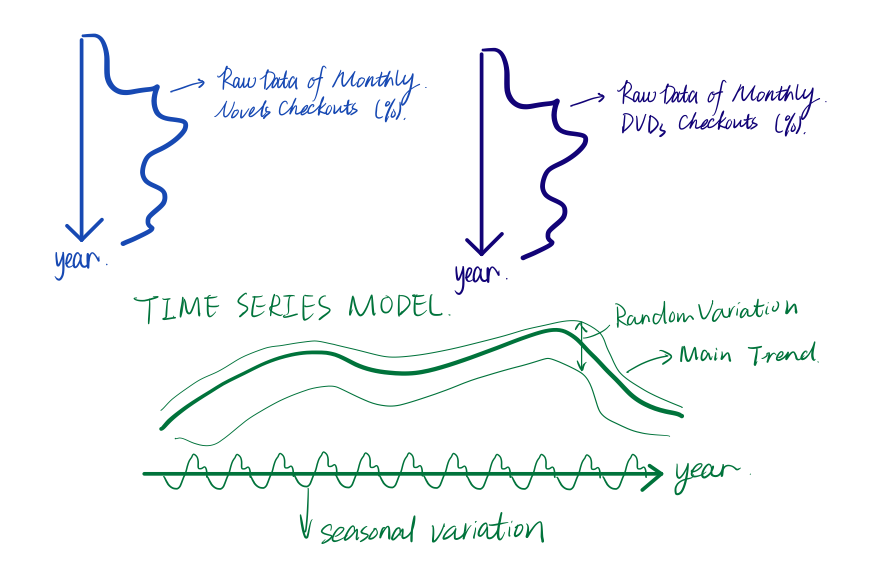 Raw Data of Monthly.
Novels Checkouts (%).
year.
Raw Data of Monthly.
DVDs Checkouts (%).
year.
TIME SERIES MODEL.
Random Variation
Main Trend.
year.
seasonal variation